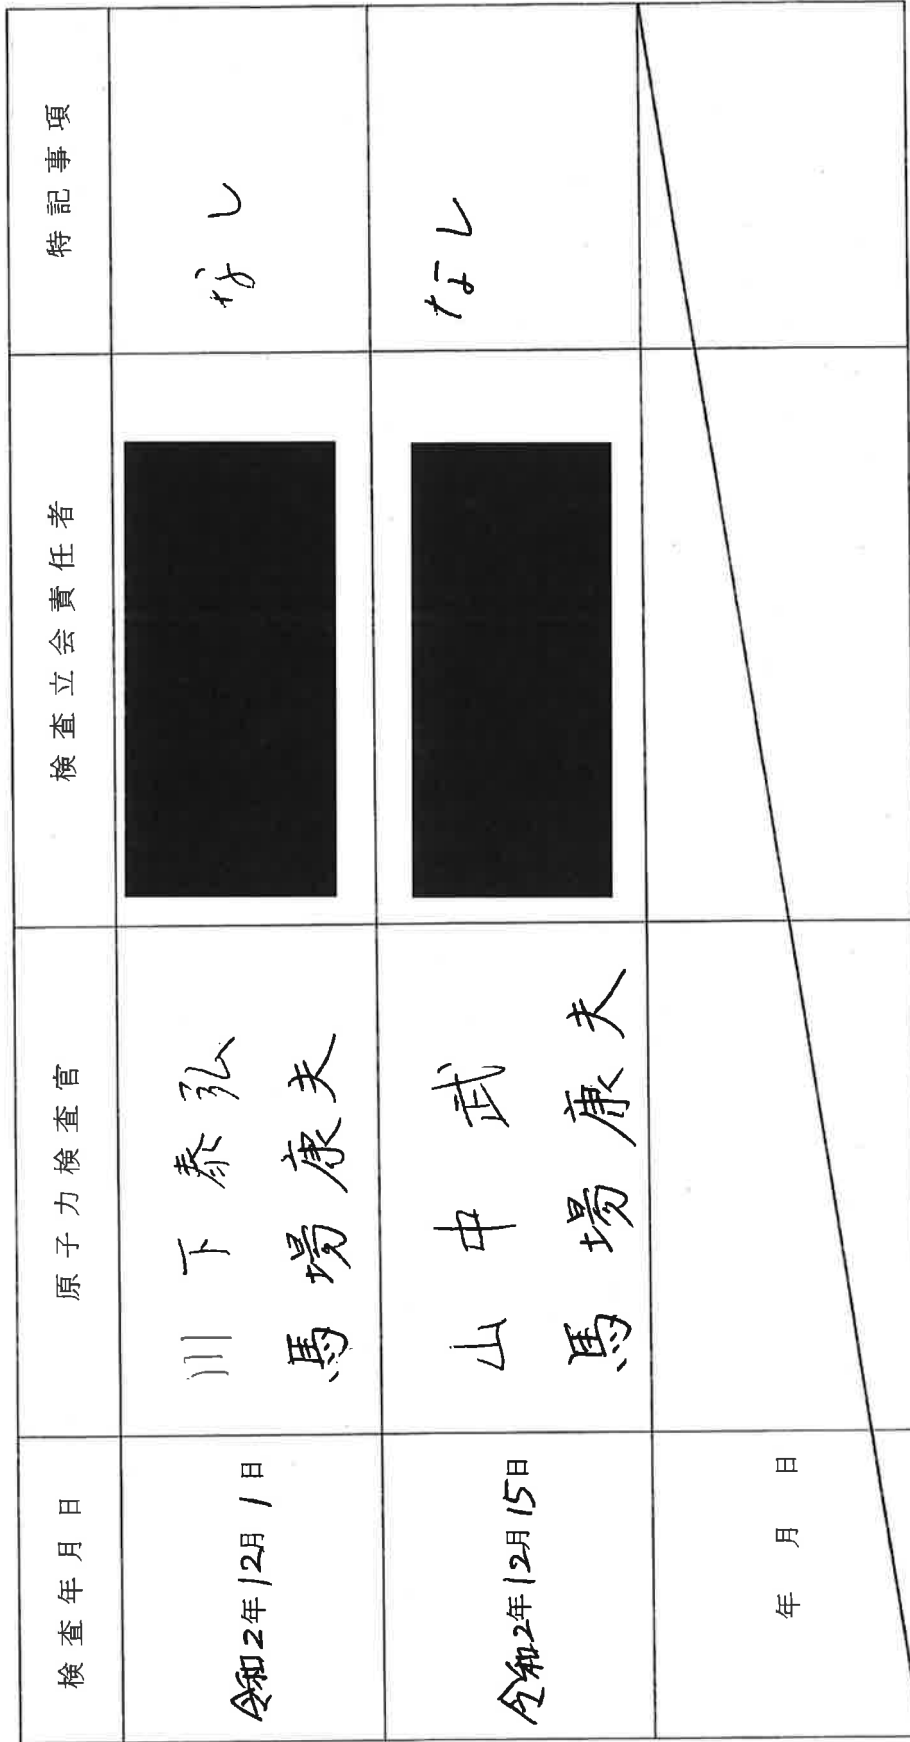 検査年月日 原子力検査官 検査立会責任者 特記事項
令和2年12月1日 川下泰弘 なし
馬場康夫
令和2年12月15日 山中武 なし
馬場康夫
年 月 日